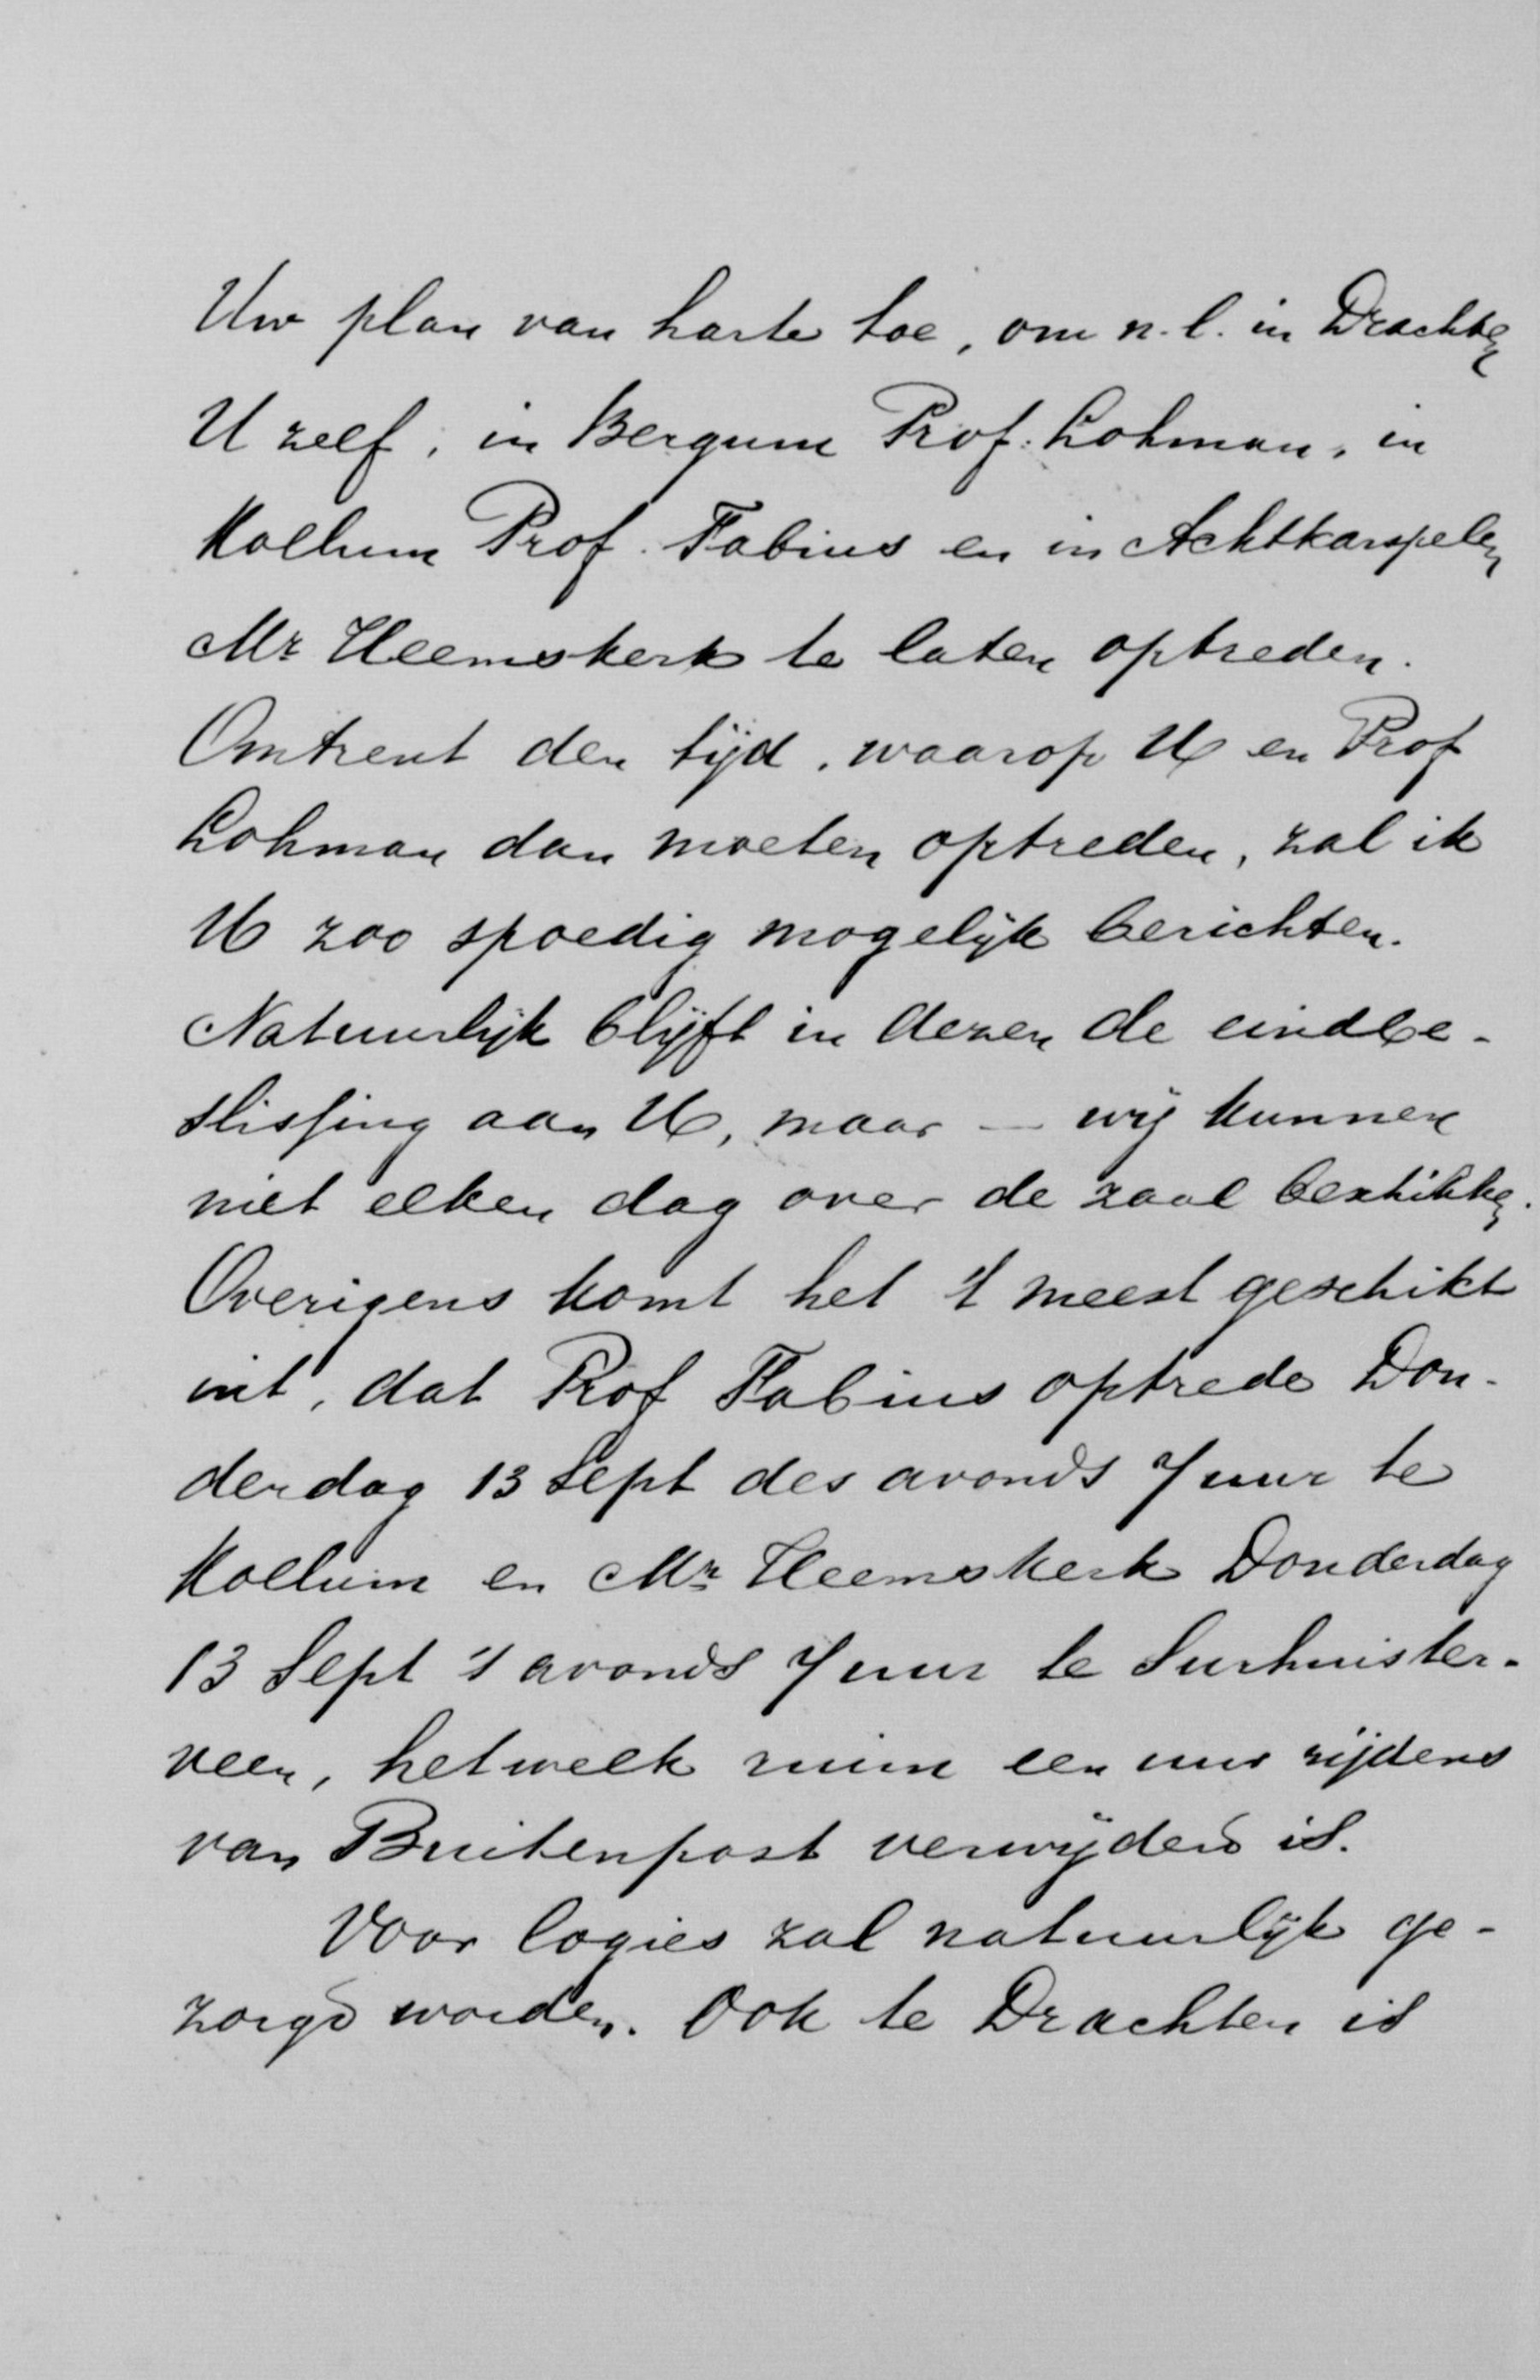 Uw plan van harte toe, om n.l. in Drachten
U zelf, in Bergum Prof. Lohman, in
Kollum Prof. Fabius en in Achtkarspelen
Mr Heemskerk te laten optreden.
Omtrent den tijd, waarop U en Prof
Lohman dan moeten optreden, zal ik
U zoo spoedig mogelijk berichten.
Natuurlijk blijft in dezen de eindbe-
slissing aan U, maar — wij kunnen
niet elken dag over de zaal beschikken.
Overigens komt het 't meest geschikt
uit, dat Prof Fabius optrede Don-
derdag 13 Sept des avonds 7 uur te
Kollum en Mr Heemskerk Donderdag
13 Sept 's avonds 7 uur te Surhuister-
veen, hetwelk ruim een uur rijdens
van Buitenpost verwijderd is.
Voor logies zal natuurlijk ge-
zorgd worden. Ook te Drachten is